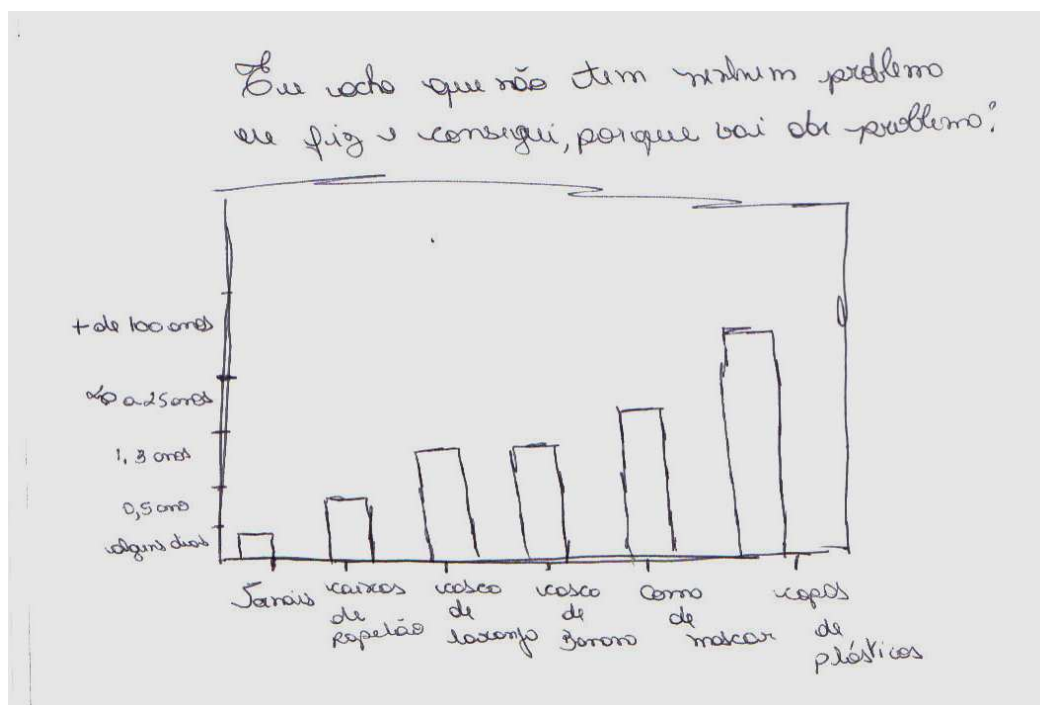 Eu acho que não tem nenhum problema
eu fiz e consegui, porque vai da problema?
+ de 100 anos
20 a 25 anos
1,3 anos
0,5 ano
alguns dias
Jornais
caixas de Papelão
casca de laranja
casca de Banana
Goma de mascar
copos de plásticos